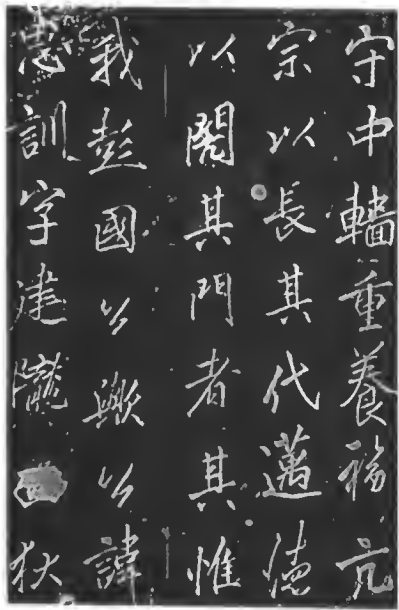 守中轖重養福亢
宗以長其代邁德
以闡其門者其惟
我彭國公歟公諱
思訓字建隴西狄